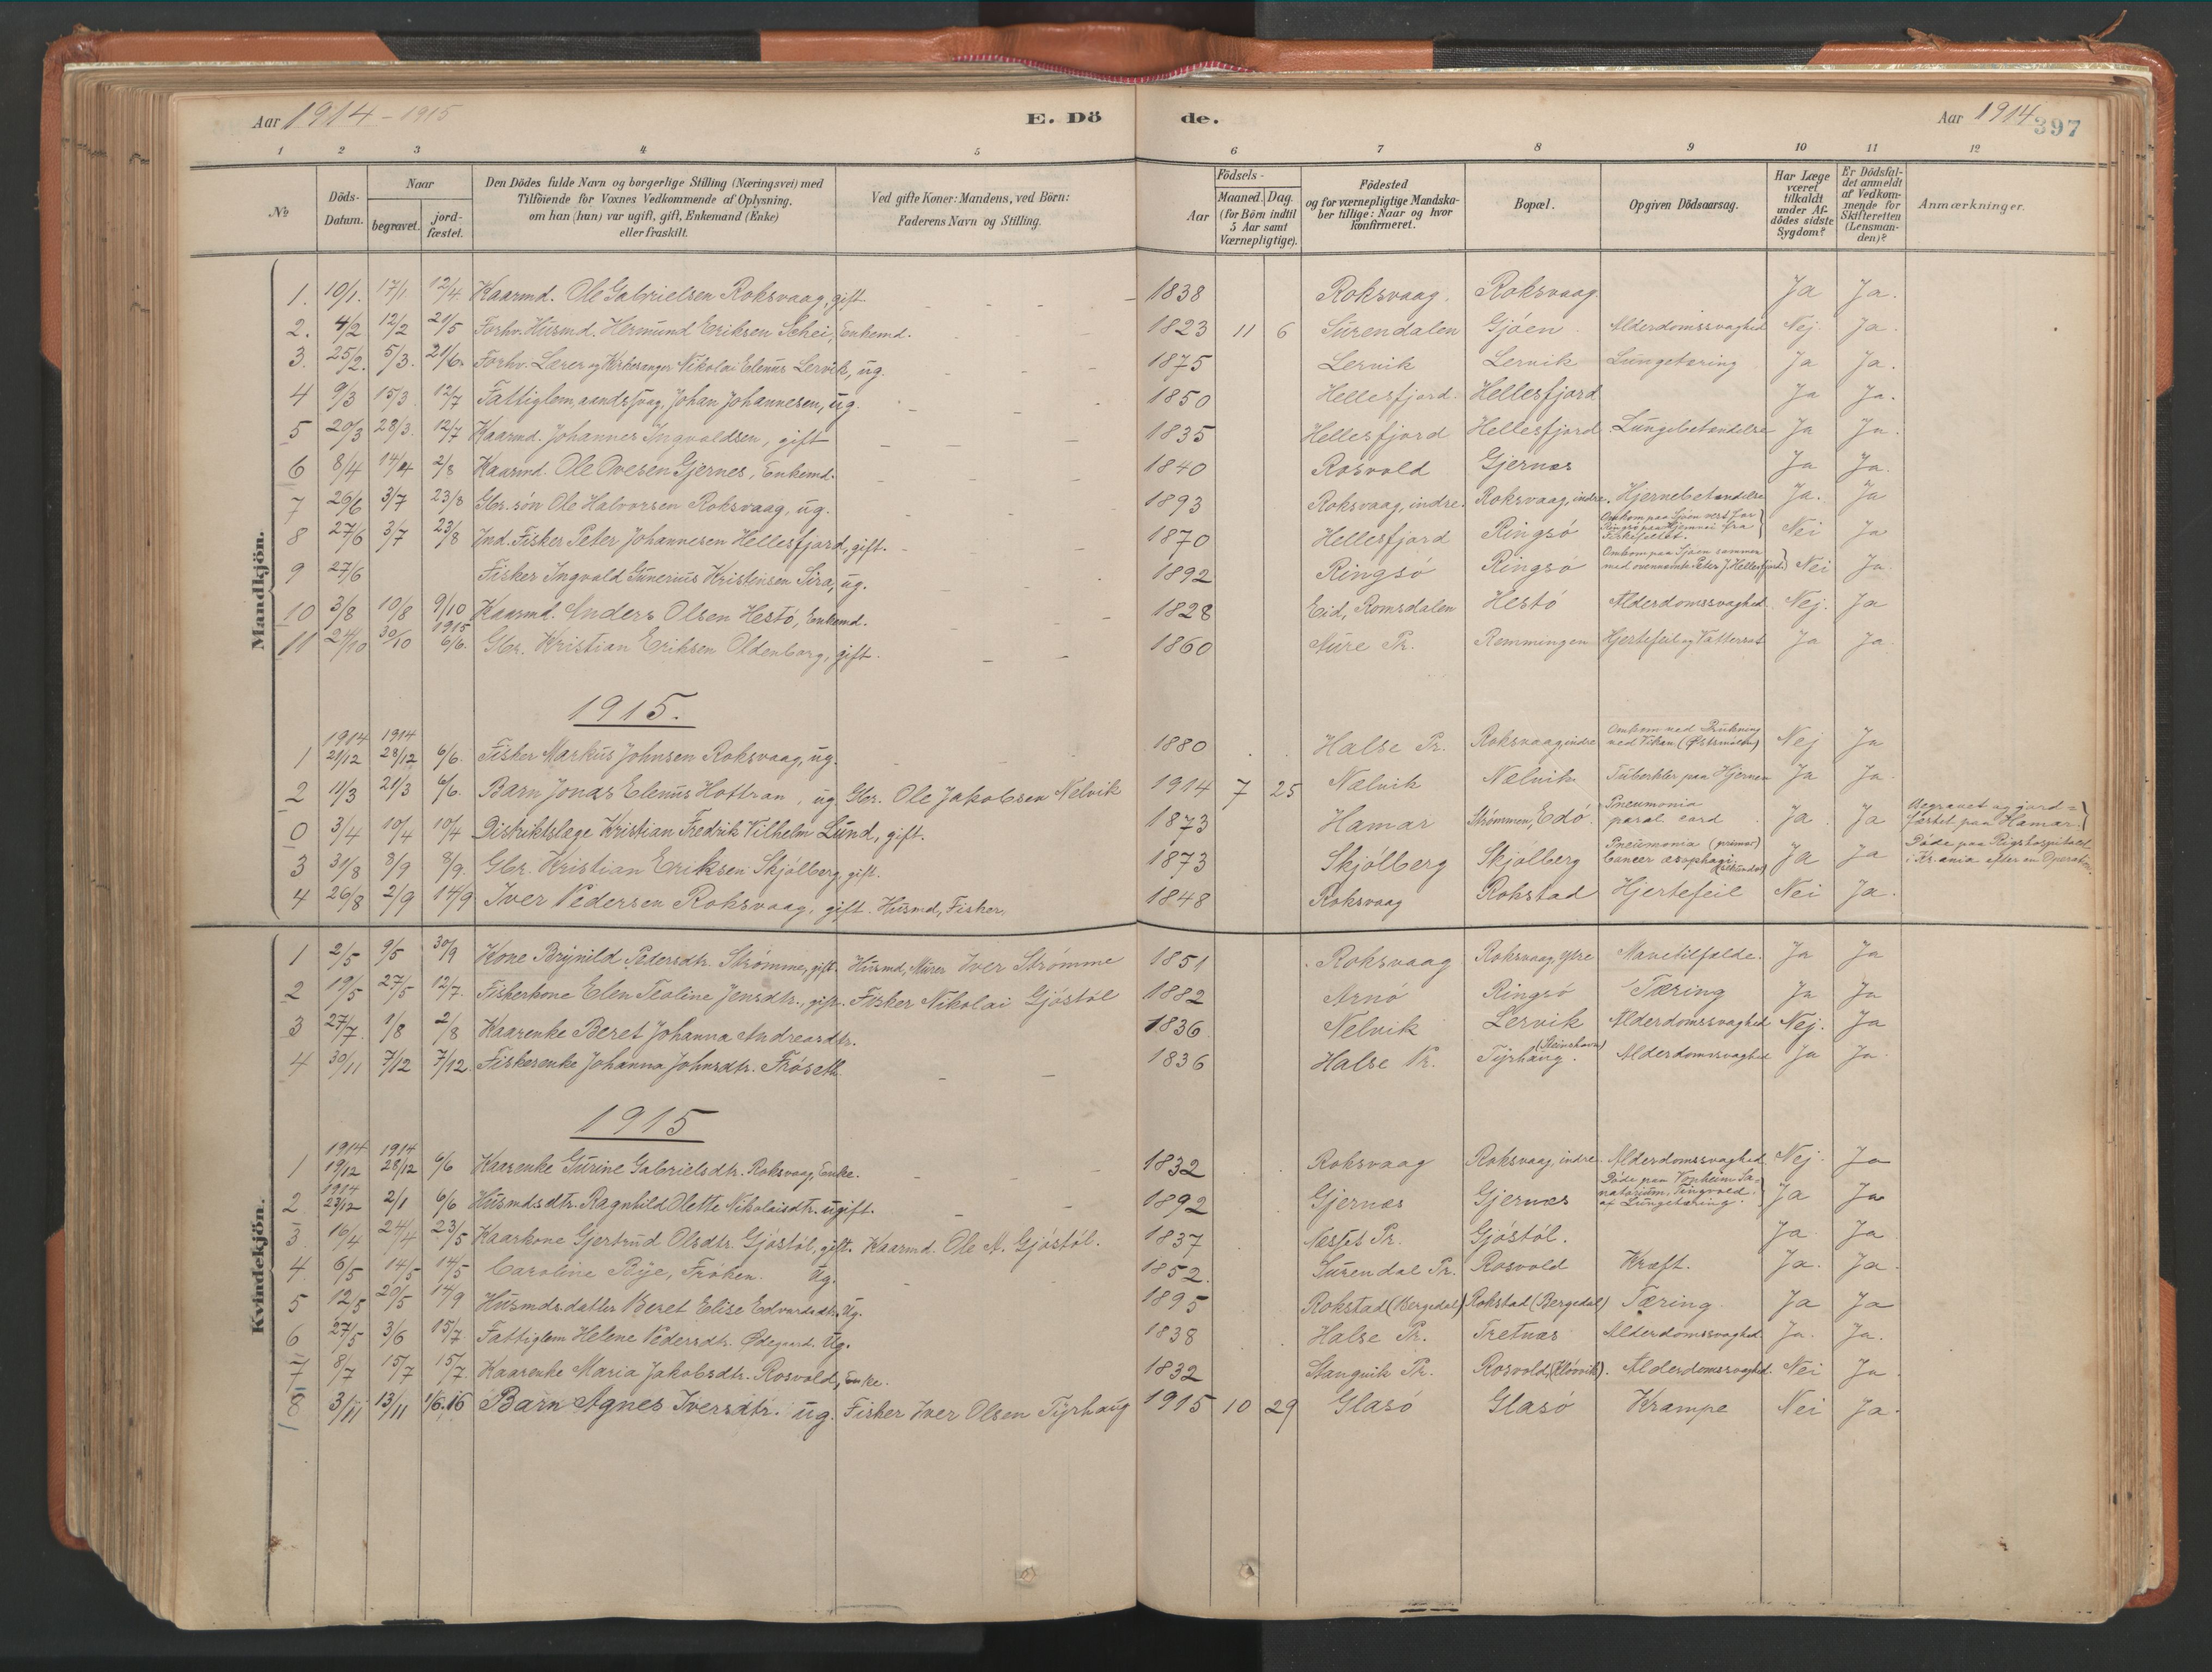 Aar 1914-1915 E. Dö de. Aar 1914 397
1 2 3 4 5 6 7 8 9 10 11 12
No Döds-Datum. Naar begravet. jord-fæstet. Den Dödes fulde Navn og borgerlige Stilling (Næringsvei) med Tilföiende for Voxnes Vedkommende af Oplysning, om han (hun) var ugift, gift, Enkemand (Enke) eller fraskilt. Ved gifte Koner: Mandens, ved Börn: Faderens Navn og Stilling. Födsels- Aar Maaned. Dag. (for Börn indtil 5 Aar samt Værnepligtige). Födested og for værnepligtige Mandskaber tillige: Naar og hvor konfirmeret. Bopæl. Opgiven Dödsaarsag. Har Læge været tilkaldt under Afdödes sidste Sygdom? Er Dödsfaldet anmeldt af Vedkommende for Skifteretten (Lensmanden)? Anmærkninger.
Mandkjön.
1. 10/1. 17/1. 12/4 Kaarmd. Ole Gabrielsen Roksvaag, gift. 1838 Roksvaag. Roksvaag. Ja Ja.
2. 4/2 12/2 21/5 Forhv. Husmd. Hermund Eriksen Schei, Enkemd. 1823 11 6 Surendalen Gjøen Alderdomssvaghed Nej. Ja.
3. 25/2. 5/3. 21/6. Forhv. Lærer og Kirkesanger Nikolai Elenus Lervik, ug. 1875 Lervik Lervik Lungetæring Ja Ja.
4 9/3 15/3 12/7 Fattiglem, aandssvag, Johan Johannesen, ug. 1850 Hellesfjord. Hellesfjord Ja Ja.
5 20/3 28/3. 12/7 Kaarmd. Johannes Ingvaldsen, gift 1835 Hellesfjord Hellesfjord Lungebetændelse Ja Ja.
6 8/4 14/4 2/8 Kaarmd. Ole Ovesen Gjernes, Enkemd. 1840 Rosvold Gjernæs Ja Ja.
7 26/6 3/7 23/8 Gbr. søn Ole Halvorsen Roksvaag, ug. 1893 Roksvaag, indre. Roksvaag, indre. Hjernebetændelse Ja. Ja
8 27/6 3/7 23/8 Ind. Fisker Peter Johannesen Hellesfjord, gift. 1870 Hellesfjord Ringsø Omkom paa Sjøen vest for Ringsø paa Hjemvei fra Nei Ja
9 27/6 Fisker Ingvald Gunerius Kristensen Sira, ug. 1892 Ringsø Ringsø Omkom paa Sjøen sammen med ovennævnte Peter J. Hellesfjord. Nei Ja.
10 3/8 10/8 9/10 Kaarmd. Anders Olsen Hestø, Enkemd. 1828 Eid, Romsdalen Hestø Alderdomssvaghed Nej. Ja
11 24/10 30/10 1915 6/6. Gbr. Kristian Eriksen Oldenborg, gift. 1860 Aure Pr. Remmingen Hjertefeil og Vattersot Ja Ja.
1915.
1 1914 21/12 1914 28/12 6/6. Fisker Markus Johnsen Roksvaag, ug. 1880 Halse Pr. Roksvaag indre Omkom ved Drukning ved Vikan (Østsmølen) Nej Ja
2 11/3 21/3 6/6. Barn Jonas Elenus Hottran, ug Gbr. Ole Jakobsen Nelvik 1914 7 25 Nælvik Nælvik Tuberkler paa Hjernen Ja Ja.
0 3/4 10/4 10/4 Distriktslæge Kristian Fredrik Vilhelm Lund, gift. 1873 Hamar Strømmen, Edø. Pneumonia paral. cord Ja Ja Begravet og jordfæstet paa Hamar.
3 31/8 8/9 8/9. Gbr. Kristian Eriksen Skjølberg, gift. 1873 Skjølberg Skjølberg Pneumonia (primær) Cancer æsophagi (sekundær) Ja Ja Døde paa Rigshospitalet i Kr.ania efter en Operation.
4 26/8 2/9 14/9 Iver Pedersen Roksvaag, gift. Husmd, Fisker. 1848 Roksvaag Rokstad Hjertefeil Nei Ja.
Kvindekjön.
1 2/5 9/5 30/9 Kone Brynild Pedersdtr. Strømme, gift. Husmd, Murer Iver Strømme 1851 Roksvaag Roksvaag, Ytre Mavetilfælde. Ja Ja
2 19/5 27/5 12/7. Fiskerkone Elen Teoline Jensdtr., gift. Fisker Nikolai Gjøstøl 1882 Arnø Ringsø Tæring Ja Ja
3 27/7. 1/8 2/8 Kaarenke Beret Johanna Andreasdtr. 1836 Nelvik Lervik Alderdomssvaghed Nej. Ja
4 30/11 7/12 7/12. Fiskerenke Johanna Johnsdtr. Frøseth 1836 Halse Pr. Tyrhaug. (Steinshavn) Alderdomssvaghed Ja Ja.
1915
1 1914 19/12 1914 28/12 6/6 Kaarenke Gurine Gabrielsdtr. Roksvaag, Enke. 1832 Roksvaag Roksvaag, indre. Alderdomssvaghed Nej. Ja
2. 1914 29/12 2/1 6/6 Husmdsdtr. Ragnhild Olette Nikolaisdtr. ugift. 1892 Gjernæs Gjernæs Døde paa Vonheim Sanatorium, Tingvold. af Lungetæring. Ja Ja
3 16/4 24/4 23/5 Kaarkone Gjertrud Olsdtr. Gjøstøl, gift. Kaarmd. Ole A. Gjøstøl. 1837 Næsset Pr. Gjøstøl. Ja. Ja.
4. 6/5 14/5 14/5 Carolina Bye, Frøken. Ug. 1852. Surendal Pr. Rosvold Kræft. Ja. Ja.
5 12/5 20/5 14/9 Husmds datter Beret Elise Edvardsdtr. Ug. 1895 Rokstad (Bergedal) Rokstad (Bergedal) Tæring. Ja Ja
6 27/5 3/6 15/7. Fattiglem Helene Pedersdtr. Ødegaard. Ug. 1838 Halse Pr. Tretnæs Alderdomssvaghed Ja. Ja.
7 8/7 15/7 15/7. Kaarenke Maria Jakobsdtr. Rosvold, Enke. 1832 Stangvik Pr. Rosvold, (Kløvvik). Alderdomssvaghed. Nei Ja
8 3/11 13/11 1/6.16 Barn Agnes Iversdtr. ug. Fisker Iver Olsen Tyrhaug 1915 10 29 Glasø Glasø Krampe Nei Ja.